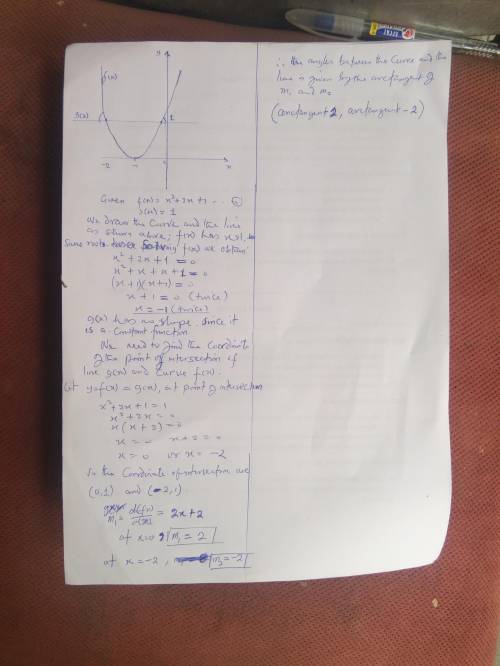 y
f(x)
g(x)
1
-2
-1
x
Given f(x) = x²+2x+1
g(x) = 1
We draw the Curve and the line
as shown above; f(x) has
same roots f(x) we obtain
x² + 2x + 1 = 0
x² + x + x + 1 = 0
(x + 1)(x + 1) = 0
x + 1 = 0 (twice)
x = -1 (twice)
g(x) has no slope since it
is a Constant function
We need to find the Coordinate
of the point of intersection of
line g(x) and Curve f(x).
Let y=f(x) = g(x), at point of intersection
x² + 2x + 1 = 1
x² + 2x = 0
x (x + 2) = 0
x = 0 x + 2 = 0
x = 0 or x = -2
So the Coordinate of intersection are
(0,1) and (-2,1)
m₁ = = 2x + 2
at x=0, m₁ = 2
at x = -2, m₂ = -2
∴ the angles between the Curve and the
line is given by the arctangent of
m₁ and m₂
(arctangent 2, arctangent -2)